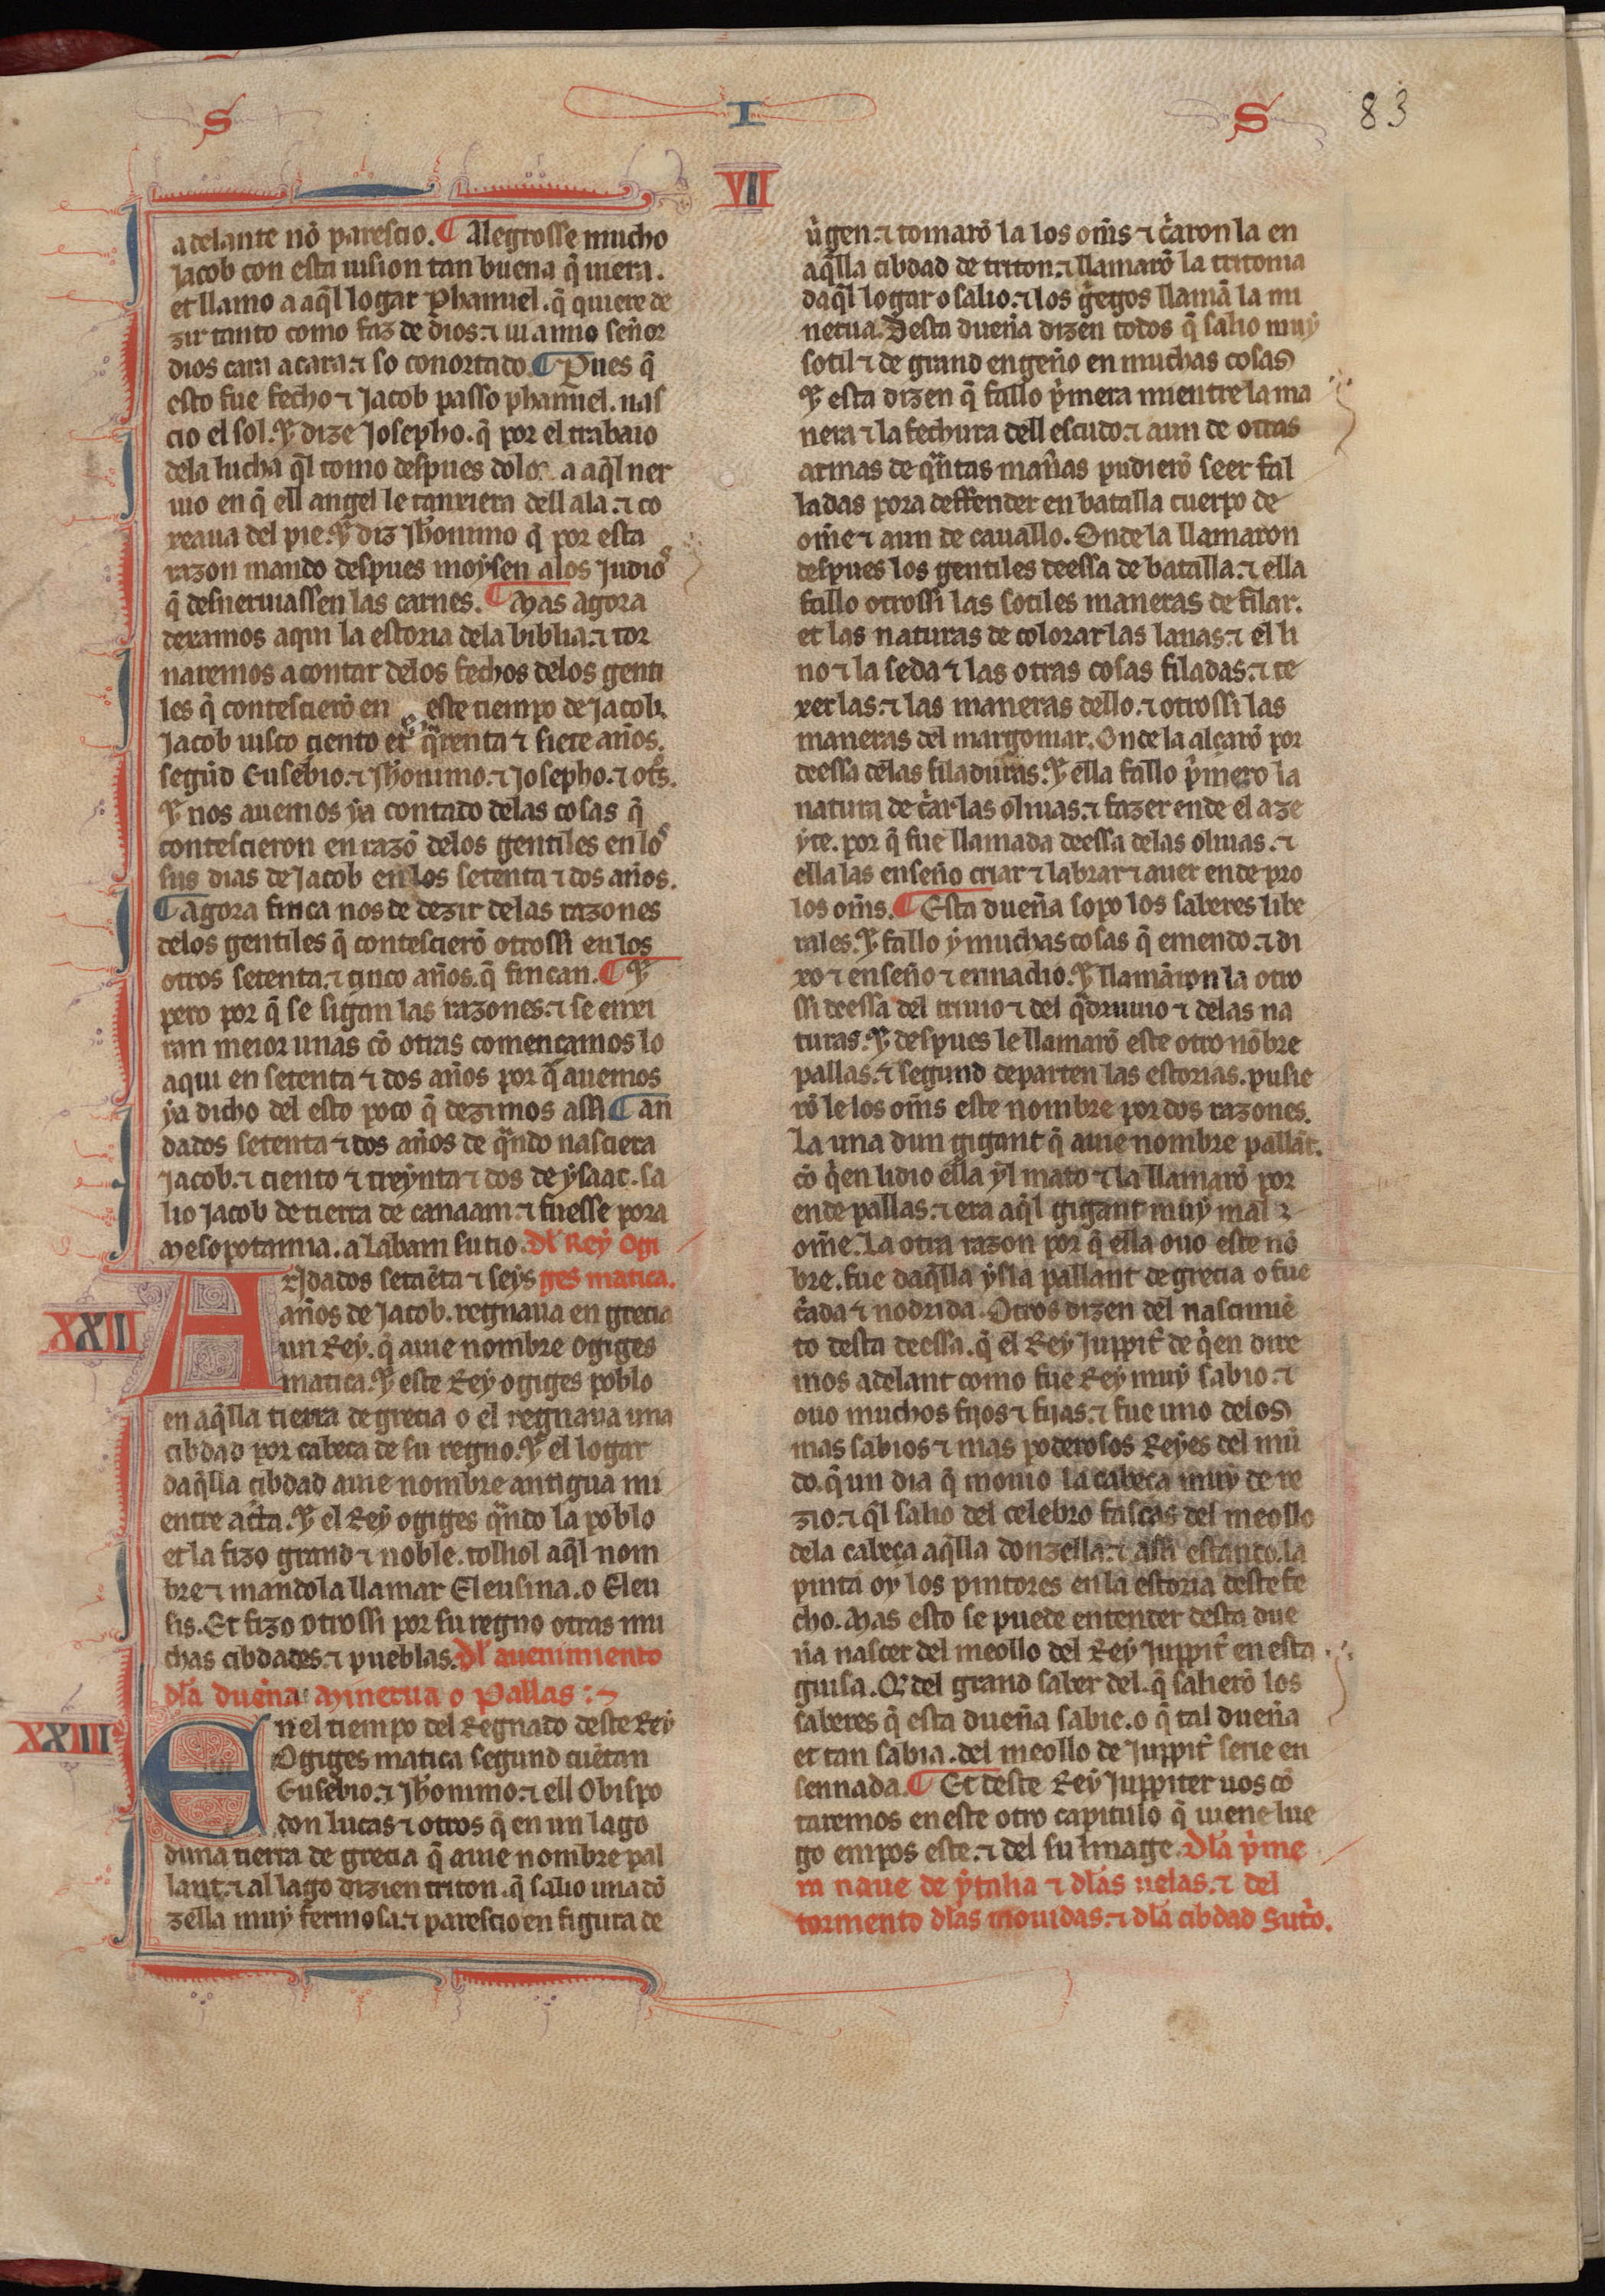 S I S 83
VII
adelante nõ parescio. ¶ Alegrosse mucho
Jacob con esta uision tan buena q̃ uiera.
et llamo a aq̃l logar Phanuel. q̃ quiere de
zir tanto como faz de dios. ⁊ ui a mio señor
dios cara a cara. ⁊ so conortado. ¶ Pues q̃
esto fue fecho ⁊ Jacob passo phanuel. nas
cio el sol. Y dize Josepho. q̃ por el trabaio
dela lucha q̃l tomo despues dolor a aq̃l ner
uio en q̃ ell angel le tanxiera dell ala. ⁊ co
xeaua del pie. Y diz Jheronimo q̃ por esta
razon mando despues moysen alos Judios
q̃ desneruiassen las carnes. ¶ Mas agora
dexamos aqui la estoria dela biblia. ⁊ tor
naremos a contar delos fechos delos genti
les q̃ contescierõ en este tiempo de Jacob.
Jacob uisco ciento et q̃renta ⁊ siete años.
segũd Eusebio. ⁊ Jheronimo. ⁊ Josepho. ⁊ otros.
Y nos auemos ya contado delas cosas q̃
contescieron en razõ delos gentiles en los
sus dias de Jacob en los setenta ⁊ dos años.
¶ Agora finca nos de dezir delas razones
delos gentiles q̃ contescierõ otrossi en los
otros setenta. ⁊ cinco años. q̃ fincan. ¶ Y
pero por q̃ se sigan las razones. ⁊ se enxi
ran meior unas cõ otras començamos lo
aqui en setenta ⁊ dos años por q̃ auemos
ya dicho del esto poco q̃ dezimos assi ¶ An
dados setenta ⁊ dos años de q̃ndo nasciera
Jacob. ⁊ ciento ⁊ treynta ⁊ dos de ysaac. sa
lio Jacob de tierra de canaam. ⁊ fuesse pora
Mesopotamia. a labam su tio. Dl Rey Ogi
ges matica.
XXII
Andados setaẽta ⁊ seys
años de Jacob. regnaua en grecia
un Rey. q̃ auie nombre ogiges
matica. Y este Rey ogiges poblo
en aq̃lla tierra de grecia o el regnaua una
cibdad por cabeça de su regno. Y el logar
daq̃lla cibdad auie nombre antigua mi
entre acta. Y el Rey ogiges q̃ndo la poblo
et la fizo grand ⁊ noble. tolliol aq̃l nom
bre ⁊ mandola llamar Eleusina. o Eleu
sis. Et fizo otrossi por su regno otras mu
chas cibdades. ⁊ pueblas. Dl auenimiento
dla dueña Minerua o Pallas :~
XXIII
En el tiempo del Regnado deste Rey
Ogiges matica segund cuẽtan
Eusebio. ⁊ Jheronimo. ⁊ ell Obispo
don lucas ⁊ otros q̃ en un lago
duna tierra de grecia q̃ auie nombre pal
lant. ⁊ al lago dizien triton. q̃ salio una dõ
zella muy fermosa. ⁊ parescio en figura de
uirgen. ⁊ tomarõ la los oms̃ ⁊ criaron la en
aq̃lla cibdad de triton. ⁊ llamarõ la tritonia
daq̃l logar o salio. ⁊ los griegos llamã la mi
nerua. Desta dueña dizen todos q̃ salio muy
sotil ⁊ de grand engeño en muchas cosas
Y esta dizen q̃ fallo primera mientre la ma
nera ⁊ la fechura dell escudo. ⁊ aun de otras
armas de q̃ntas mañas pudierõ seer fal
ladas pora deffender en batalla cuerpo de
ome ⁊ aun de cauallo. Onde la llamaron
despues los gentiles deessa de batalla. ⁊ ella
fallo otrossi las sotiles maneras de filar.
et las naturas de colorar las lanas. ⁊ el li
no ⁊ la seda ⁊ las otras cosas filadas. ⁊ te
xer las. ⁊ las maneras dello. ⁊ otrossi las
maneras del margomar. Onde la alçarõ por
deessa delas filaduras. Y ella fallo primero la
natura de criar las oliuas. ⁊ fazer ende el aze
yte. por q̃ fue llamada deessa delas oliuas. ⁊
ella las enseño criar ⁊ labrar ⁊ auer ende pro
los oms̃. ¶ Esta dueña sopo los saberes libe
rales. Y fallo y muchas cosas q̃ emendo. ⁊ di
xo ⁊ enseño ⁊ ennadio. Y llamaron la otro
ssi deessa del triuio ⁊ del q̃druuio ⁊ delas na
turas. Y despues le llamarõ este otro nõbre
pallas. ⁊ segund departen las estorias. pusie
rõ le los oms̃ este nombre por dos razones.
La una dun gigant q̃ auie nombre pallãt.
cõ q̃en lidio ella yl mato ⁊ la llamarõ por
ende pallas. ⁊ era aq̃l gigant muy mal
ome. La otra razon por q̃ ella ouo este nõ
bre. fue daq̃lla ysla pallant de grecia o fue
criada ⁊ nodrida. Otros dizen del nascimiẽ
to desta deessa. q̃ el Rey Juppiter de q̃en dire
mos adelant como fue Rey muy sabio. ⁊
ouo muchos fijos ⁊ fijas. ⁊ fue uno delos
mas sabios ⁊ mas poderosos Reyes del mũ
do. q̃ un dia q̃ mouio la cabeça muy de re
zio. ⁊ q̃l salio del celebro fascas del meollo
dela cabeça aq̃lla donzella. ⁊ assi estando la
pintã oy los pintores en la estoria deste fe
cho. Mas esto se puede entender desta due
ña nascer del meollo del Rey Juppiter en esta
guisa. Q̃ del grand saber del. q̃ salierõ los
saberes q̃ esta dueña sabie. o q̃ tal dueña
et tan sabia. del meollo de Juppiter serie en
sennada. ¶ Et deste Rey Juppiter uos cõ
taremos en este otro capitulo q̃ uiene lue
go empos este. ⁊ del su linage. Dla prime
ra naue de ytalia ⁊ dlas uelas. ⁊ del
tormento dlas mouidas. ⁊ dla cibdad Sutrio.